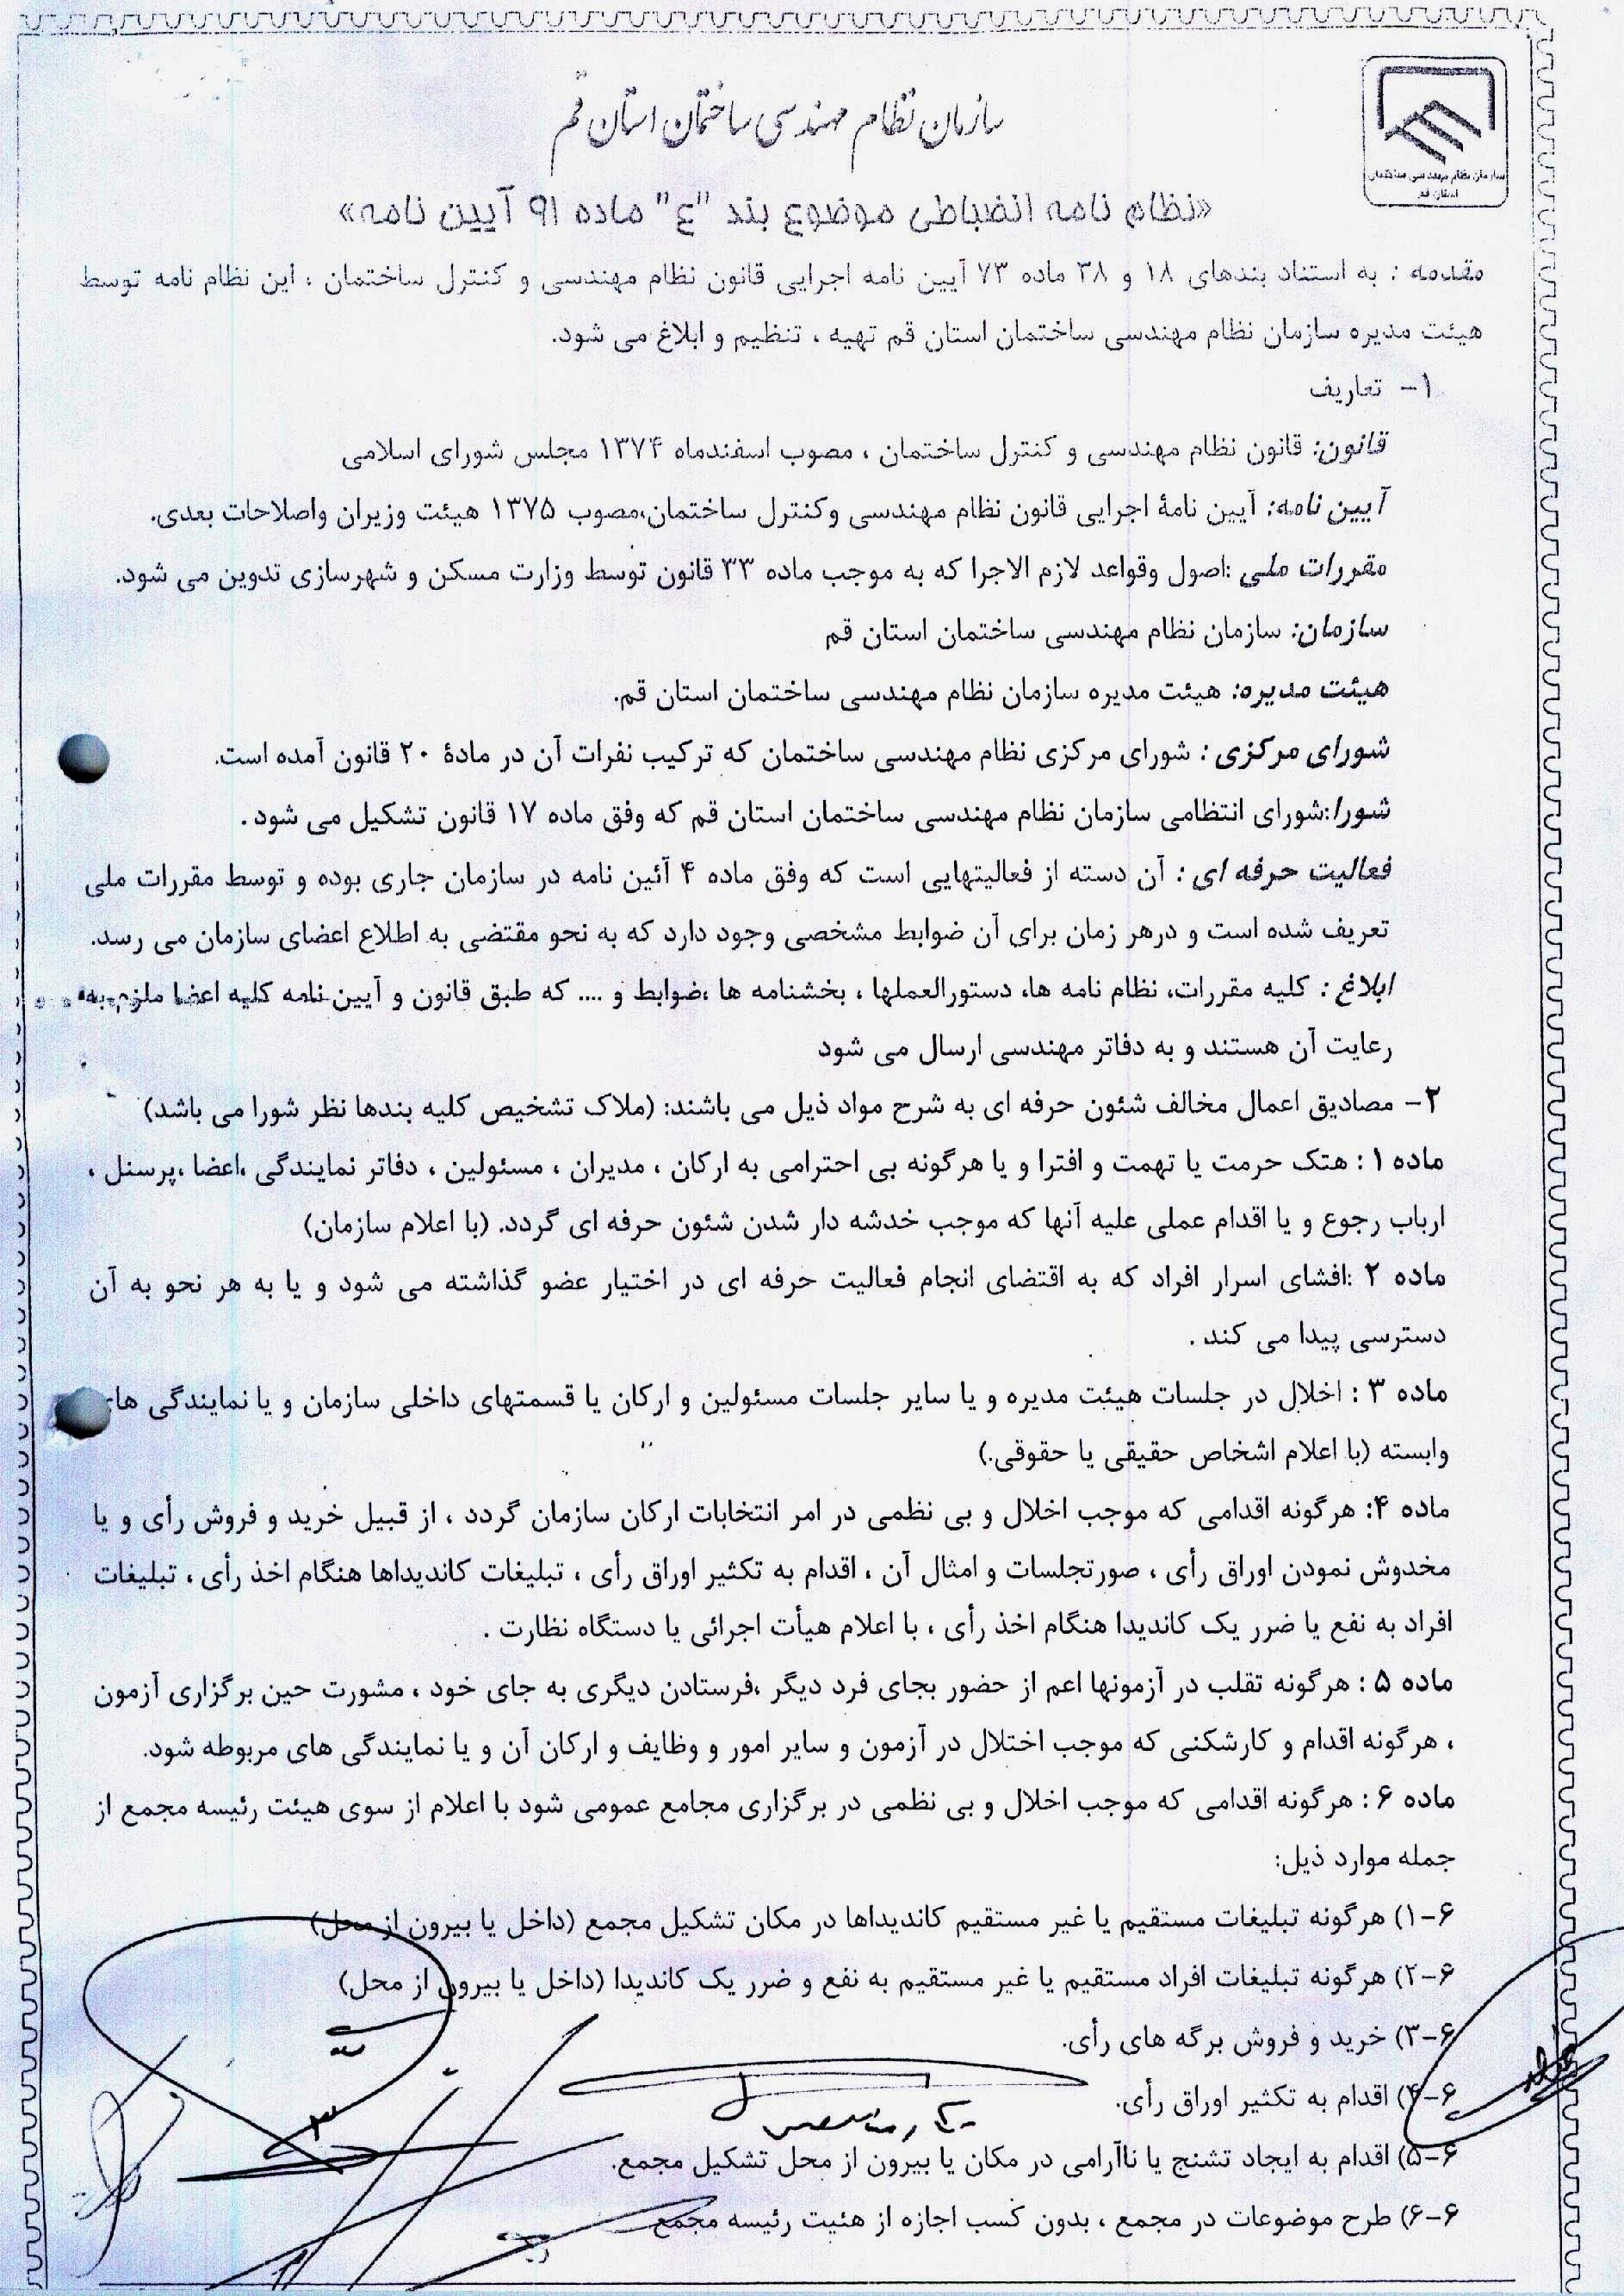 سازمان نظام مهندسی ساختمان استان قم
سازمان نظام مهندسی ساختمان
استان قم
«نظام نامه انضباطی موضوع بند "ع" ماده ۹۱ آیین نامه»
مقدمه : به استناد بندهای ۱۸ و ۳۸ ماده ۷۳ آیین نامه اجرایی قانون نظام مهندسی و کنترل ساختمان ، این نظام نامه توسط
هیئت مدیره سازمان نظام مهندسی ساختمان استان قم تهیه ، تنظیم و ابلاغ می شود.
۱- تعاریف
قانون: قانون نظام مهندسی و کنترل ساختمان ، مصوب اسفندماه ۱۳۷۴ مجلس شورای اسلامی
آیین نامه: آیین نامۀ اجرایی قانون نظام مهندسی وکنترل ساختمان،مصوب ۱۳۷۵ هیئت وزیران واصلاحات بعدی.
مقررات ملی :اصول وقواعد لازم الاجرا که به موجب ماده ۳۳ قانون توسط وزارت مسکن و شهرسازی تدوین می شود.
سازمان: سازمان نظام مهندسی ساختمان استان قم
هیئت مدیره: هیئت مدیره سازمان نظام مهندسی ساختمان استان قم.
شورای مرکزی : شورای مرکزی نظام مهندسی ساختمان که ترکیب نفرات آن در مادۀ ۲۰ قانون آمده است.
شورا:شورای انتظامی سازمان نظام مهندسی ساختمان استان قم که وفق ماده ۱۷ قانون تشکیل می شود .
فعالیت حرفه ای : آن دسته از فعالیتهایی است که وفق ماده ۴ آئین نامه در سازمان جاری بوده و توسط مقررات ملی
تعریف شده است و درهر زمان برای آن ضوابط مشخصی وجود دارد که به نحو مقتضی به اطلاع اعضای سازمان می رسد.
ابلاغ : کلیه مقررات، نظام نامه ها، دستورالعملها ، بخشنامه ها ،ضوابط و .... که طبق قانون و آیین نامه کلیه اعضا ملزم به
رعایت آن هستند و به دفاتر مهندسی ارسال می شود
۲- مصادیق اعمال مخالف شئون حرفه ای به شرح مواد ذیل می باشند: (ملاک تشخیص کلیه بندها نظر شورا می باشد)
ماده ۱ : هتک حرمت یا تهمت و افترا و یا هرگونه بی احترامی به ارکان ، مدیران ، مسئولین ، دفاتر نمایندگی ،اعضا ،پرسنل ،
ارباب رجوع و یا اقدام عملی علیه آنها که موجب خدشه دار شدن شئون حرفه ای گردد. (با اعلام سازمان)
ماده ۲ :افشای اسرار افراد که به اقتضای انجام فعالیت حرفه ای در اختیار عضو گذاشته می شود و یا به هر نحو به آن
دسترسی پیدا می کند .
ماده ۳ : اخلال در جلسات هیئت مدیره و یا سایر جلسات مسئولین و ارکان یا قسمتهای داخلی سازمان و یا نمایندگی های
وابسته (با اعلام اشخاص حقیقی یا حقوقی.)
ماده ۴: هرگونه اقدامی که موجب اخلال و بی نظمی در امر انتخابات ارکان سازمان گردد ، از قبیل خرید و فروش رأی و یا
مخدوش نمودن اوراق رأی ، صورتجلسات و امثال آن ، اقدام به تکثیر اوراق رأی ، تبلیغات کاندیداها هنگام اخذ رأی ، تبلیغات
افراد به نفع یا ضرر یک کاندیدا هنگام اخذ رأی ، با اعلام هیأت اجرائی یا دستگاه نظارت .
ماده ۵ : هرگونه تقلب در آزمونها اعم از حضور بجای فرد دیگر ،فرستادن دیگری به جای خود ، مشورت حین برگزاری آزمون
، هرگونه اقدام و کارشکنی که موجب اختلال در آزمون و سایر امور و وظایف و ارکان آن و یا نمایندگی های مربوطه شود.
ماده ۶ : هرگونه اقدامی که موجب اخلال و بی نظمی در برگزاری مجامع عمومی شود با اعلام از سوی هیئت رئیسه مجمع از
جمله موارد ذیل:
۶-۱) هرگونه تبلیغات مستقیم یا غیر مستقیم کاندیداها در مکان تشکیل مجمع (داخل یا بیرون از محل)
۶-۲) هرگونه تبلیغات افراد مستقیم یا غیر مستقیم به نفع و ضرر یک کاندیدا (داخل یا بیرون از محل)
۶-۳) خرید و فروش برگه های رأی.
۶-۴) اقدام به تکثیر اوراق رأی.
۶-۵) اقدام به ایجاد تشنج یا ناآرامی در مکان یا بیرون از محل تشکیل مجمع.
۶-۶) طرح موضوعات در مجمع ، بدون کسب اجازه از هئیت رئیسه مجمع